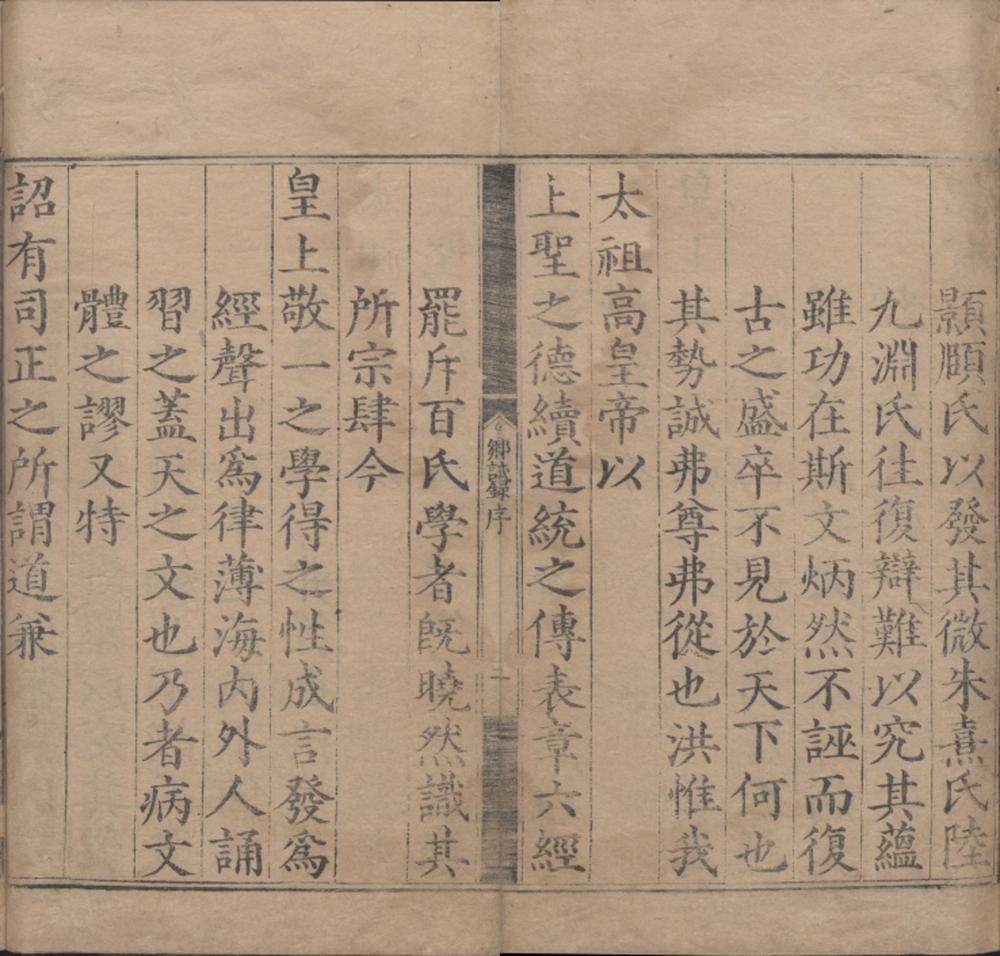 顥頤氏以發其微朱熹氏陸
九淵氏往復辯難以究其蘊
雖功在斯文炳然不誣而復
古之盛卒不見於天下何也
其勢誠弗尊弗從也洪惟我
太祖高皇帝以
上聖之德續道統之傳表章六經
鄉試錄序
二
罷斥百氏學者旣曉然識其
所宗肆今
皇上敬一之學得之性成言發爲
經聲出爲律薄海內外人誦
習之蓋天之文也乃者病文
體之謬又特
詔有司正之所謂道兼